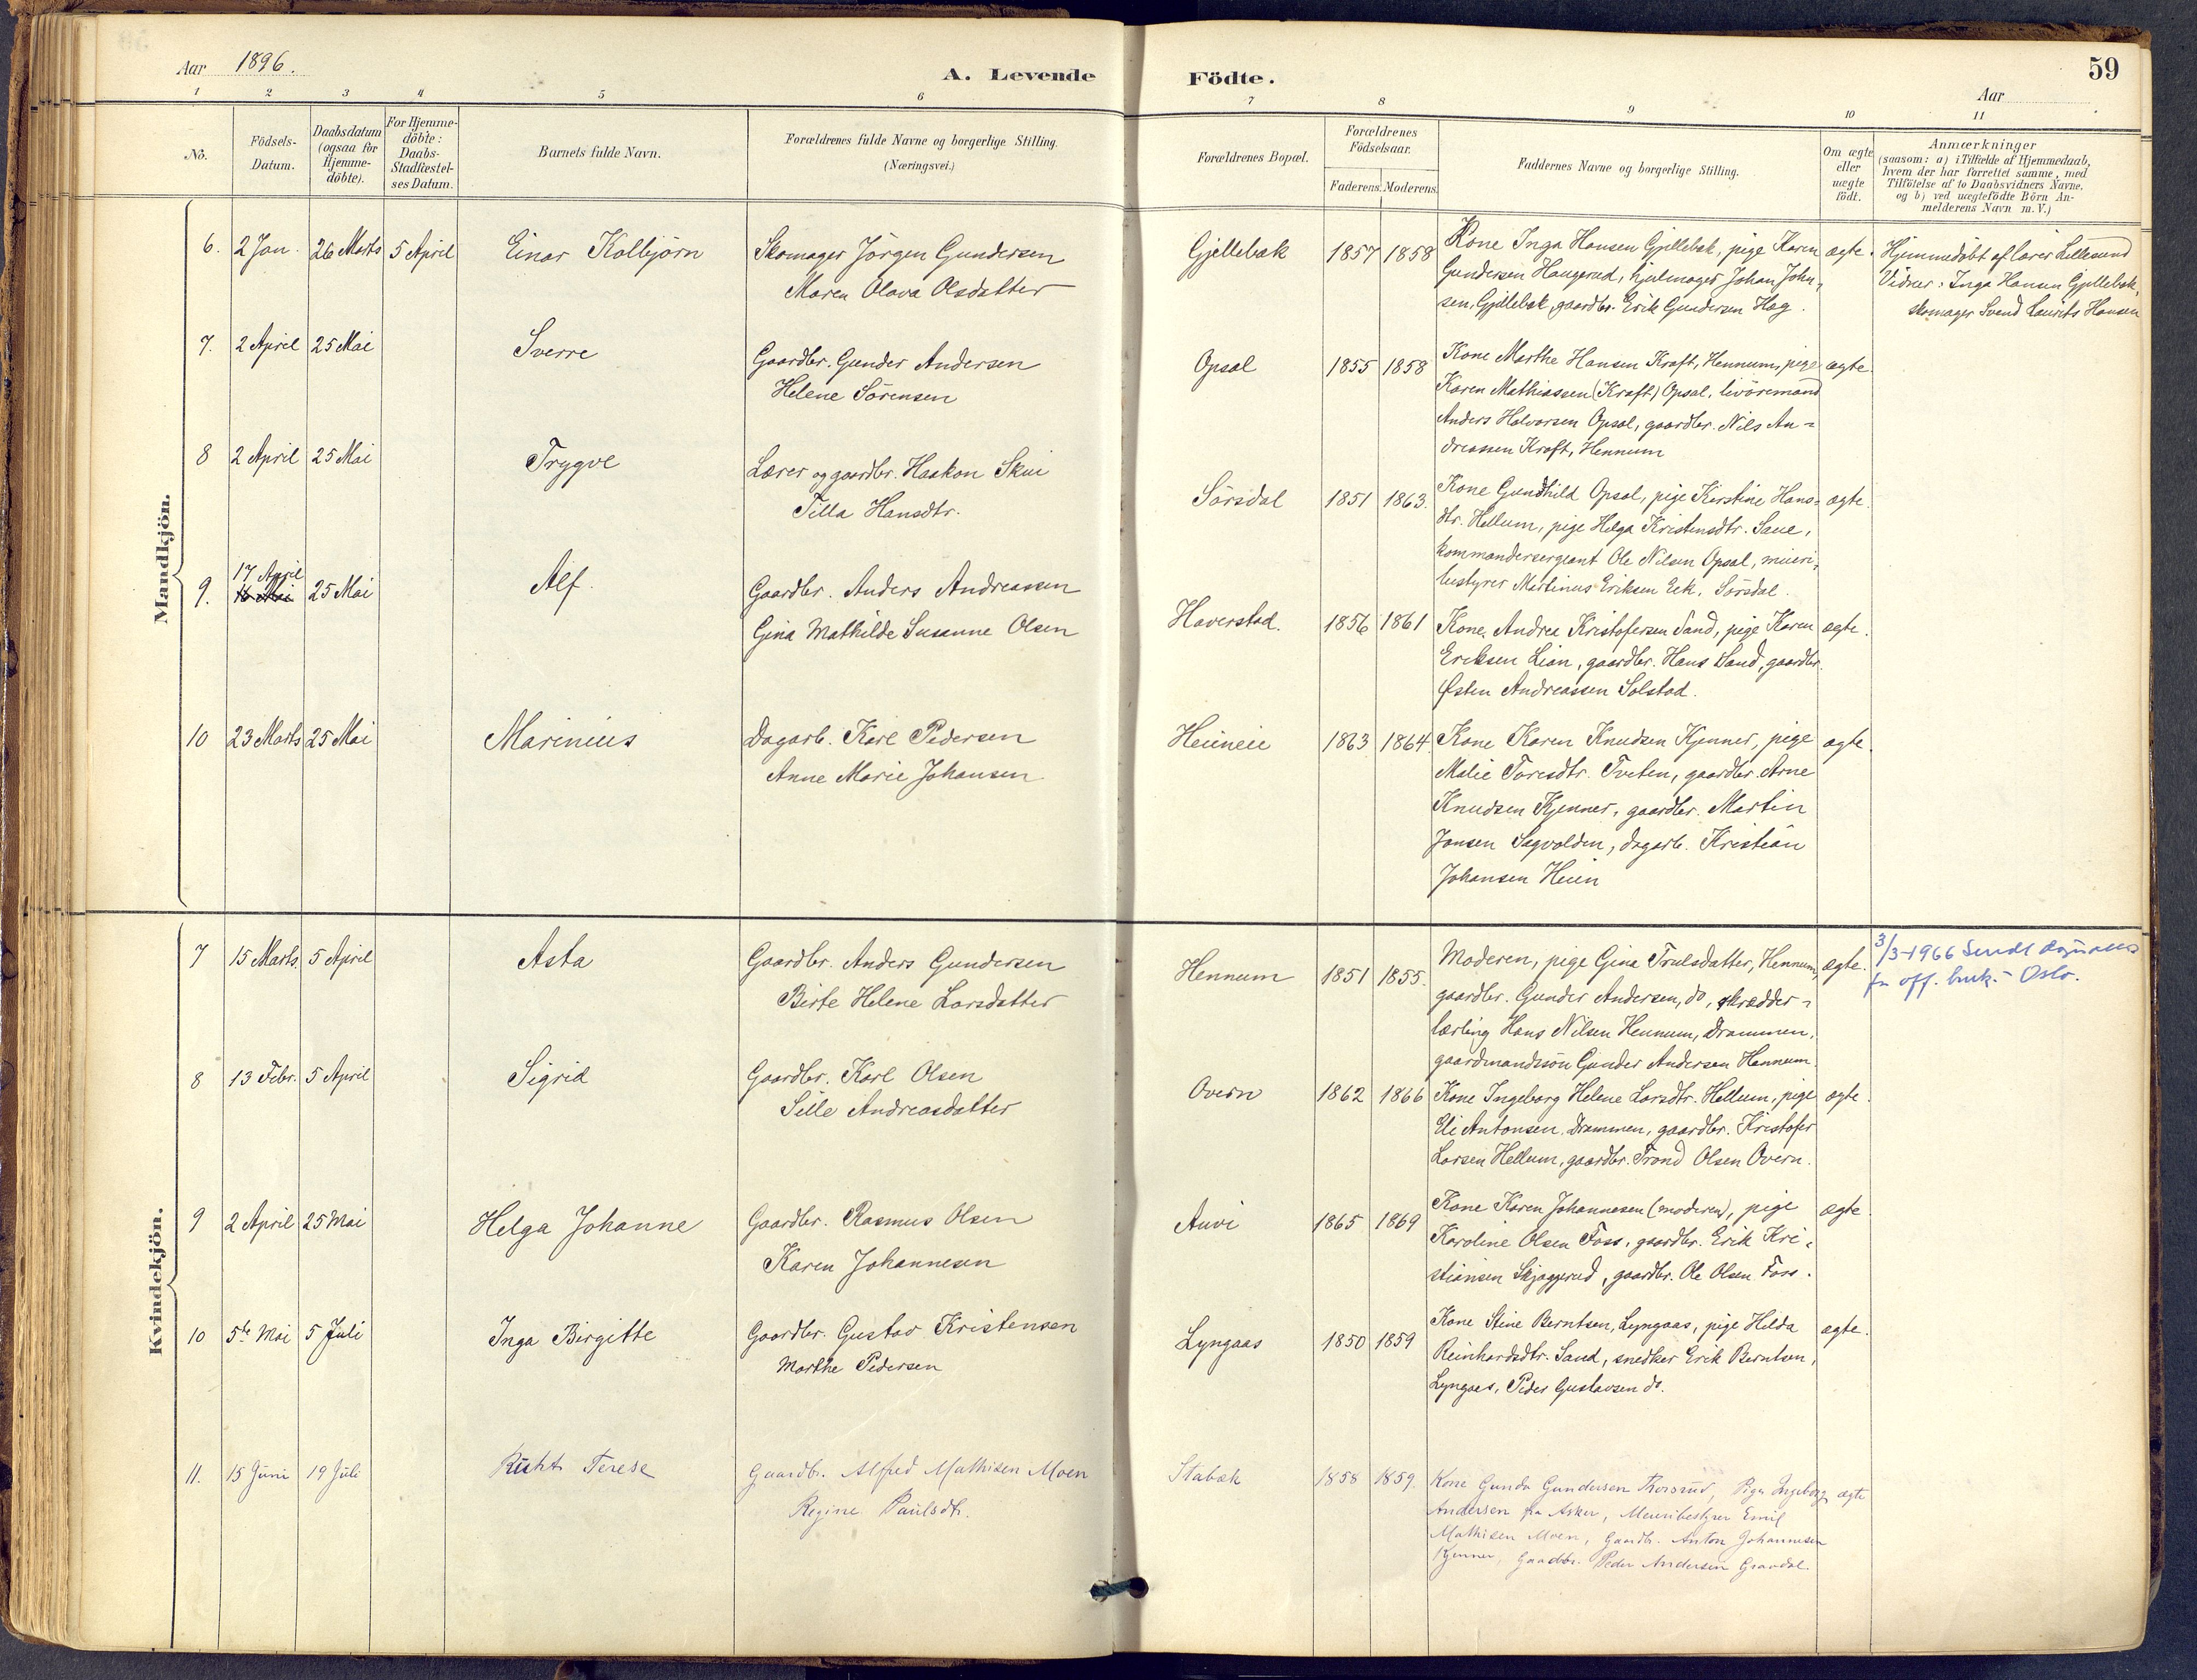 Aar 1896.
A. Levende Födte.
59
Aar
1 2 3 4 5 6 7 8 9 10 11
No.
Födsels-
Datum.
Daabsdatum
(ogsaa for
Hjemme-
döbte).
For Hjemme-
döbte:
Daabs-
Stadfæstel-
ses Datum.
Barnets fulde Navn.
Forældrenes fulde Navne og borgerlige Stilling.
(Næringsvei.)
Forældrenes Bopæl.
Forældrenes
Födselsaar.
Faderens. Moderens.
Faddernes Navne og borgerlige Stilling.
Om ægte
eller
uægte
födt.
Anmærkninger
(saasom: a) i Tilfælde af Hjemmedaab,
hvem der har forrettet samme, med
Tilföielse af to Daabsvidners Navne,
og b) ved uægtefödte Börn An-
melderens Navn m. V.)
Mandkjön.
6. 2 Jan. 26 Marts 5 April Einar Kolbjörn
Skomager Jörgen Gundersen
Maren Olava Olsdatter
Gjellebæk 1857 1858
Kone Inga Hansen Gjellebæk, pige Karen
Gundersen Haugerud, hjulmager Johan John-
sen, Gjellebæk, gaardbr. Erik Gundersen Hæg.
ægte.
Hjemmedöbt af lærer Lillesund
Vidner: Inga Hansen Gjellebæk,
skomager Svend Laurits Hansen
7. 2 April 25 Mai Sverre
Gaardbr. Gunder Andersen
Helene Sörensen
Opsal 1855 1858
Kone Marthe Hansen Kraft, Hennum, pige
Karen Mathiassen (Kraft) Opsal, livöremand
Anders Halvorsen Opsal, gaardbr. Nils An-
dreassen Kraft, Hennum
ægte
8 2 April 25 Mai Trygve
Lærer og gaardbr. Haakon Skui
Tilla Hansdtr.
Sörsdal 1851 1863.
Kone Gundhild Opsal, pige Kirstine Hans-
dtr. Hellum, pige Helga Kristensdtr. Saue,
kommandersergeant Ole Nilsen Opsal, mieri-
bestyrer Martinus Eriksen Eek, Sörsdal.
ægte.
9. 17 April
16 Mai 25 Mai Alf.
Gaardbr. Anders Andreassen
Gina Mathilde Susanne Olsen
Haverstad. 1856 1861
Kone Andrea Kristofersen Sand, pige Karen
Ereksen Lian, gaardbr. Hans Sand, gaardbr.
Østen Andreassen Solstad.
ægte.
10 23 Marts 25 Mai Marinius
Dagarb. Karl Pedersen
Anne Marie Johansen
Heineie 1863 1864.
Kone Karen Knudsen Kjenner, pige
Malie Toresdtr. Tveten, gaardbr. Arne
Knudsen Kjenner, gaardbr. Martin
Jansen Sagvolden, dagarb. Kristian
Johansen Heien
ægte.
Kvindekjön.
7 15 Marts. 5 April Asta
Gaardbr. Anders Gundersen
Birte Helene Larsdatter
Hennum 1851 1855.
Moderen, pige Gina Trulsdatter, Hennum,
gaardbr. Gunder Andersen, do, skrædder-
lærling Hans Nilsen Hennum, Drammen,
gaardmandssön Gunder Andersen Hennum.
ægte.
3/3-1966 Sendt
for off. bruk.- Oslo.
8 13 Febr. 5 April Sigrid
Gaardbr. Karl Olsen
Sille Andreasdatter
Overn 1862 1866
Kone Ingeborg Helene Larsdtr. Hellum, pige
Eli Antonsen, Drammen, gaardbr. Kristofer
Larsen Hellum, gaardbr. Trond Olsen Overn.
ægte.
9 2 April 25 Mai Helga Johanne
Gaardbr. Rasmus Olsen
Karen Johannesen
Auvi 1865 1869
Kone Karen Johannesen (moderen), pige
Karoline Olsen Foss, gaardbr. Erik Kri-
stiansen Skjæggerud, gaardbr. Ole Olsen Foss.
ægte
10 5te Mai 5 Juli Inga Birgitte
Gaardbr. Gustav Kristensen
Marthe Pedersen
Lyngaas 1850 1859
Kone Stine Berntsen, Lyngaas, pige Hilda
Reinhardsdtr. Sand, snedker Erik Berntsen,
Lyngaas, Peder Gustavsen do.
ægte.
11. 15 Juni 19 Juli Ruht Terese
Gaardbr. Alfred Mathisen Moen
Regine Paulsdtr.
Stabæk 1858 1859.
Kone Gunda Gundersen Rorsrud, Pige Ingeborg
Andersen fra Asker, Meieribestyrer Emil
Mathisen Moen, Gaardbr. Anton Johannesen
Kjenner, Gaardbr. Peder Andersen Gravdal.
ægte